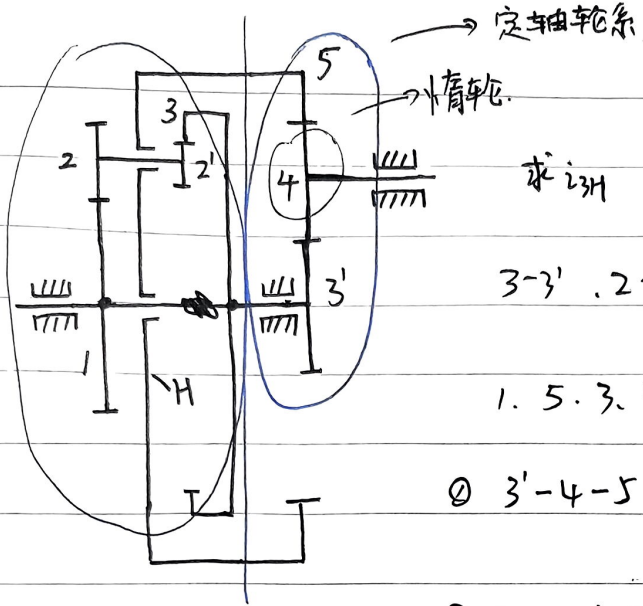 定轴轮系
5
惰轮.
3
2
2'
4
求 i3H
3'
3-3' . 2
1
H
1. 5. 3.
① 3'-4-5